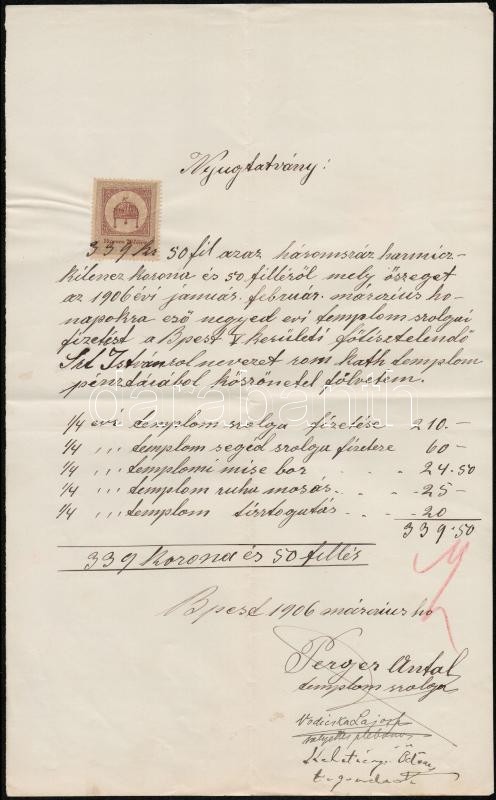 Nyugtatvány:
339 kr 50 fil azaz háromszáz harmicz-
kilencz korona és 50 filléről mely ősreget
az 1906 évi január. február. márczius ho-
napokra eső negyed evi templom szolgai
fizetést a Bpest V kerületi főtisztelendő
Szt Istvánrol nevezet rom kath templom
penztárabol köszönetel fölvetem.
1/4 évi templom szolga fizetése 210.—
1/4 ,,, templom segéd szolga fizetese 60—
1/4 ,,, templomi mise bor . . . 24.50
1/4 ,,, templom ruha mosás. . . -25—
1/4 ,,, templom tisztogatás . . -20
339.50
339 korona és 50 fillér
Bpest 1906 márczius ho
Perger Antal
templom szolga
Vodicska Lajos
helyettes plébános
Ödön
darabanth